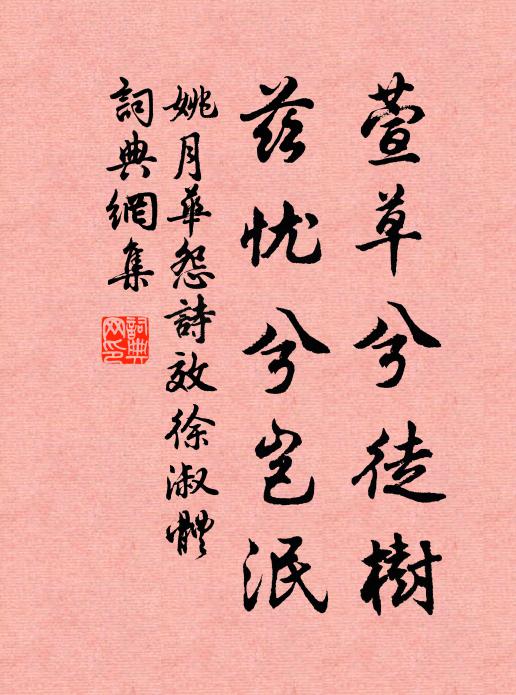 萱草兮徒樹
茲忧兮岂泯
姚月華怨詩效徐淑體
詞典網集
詞典网印